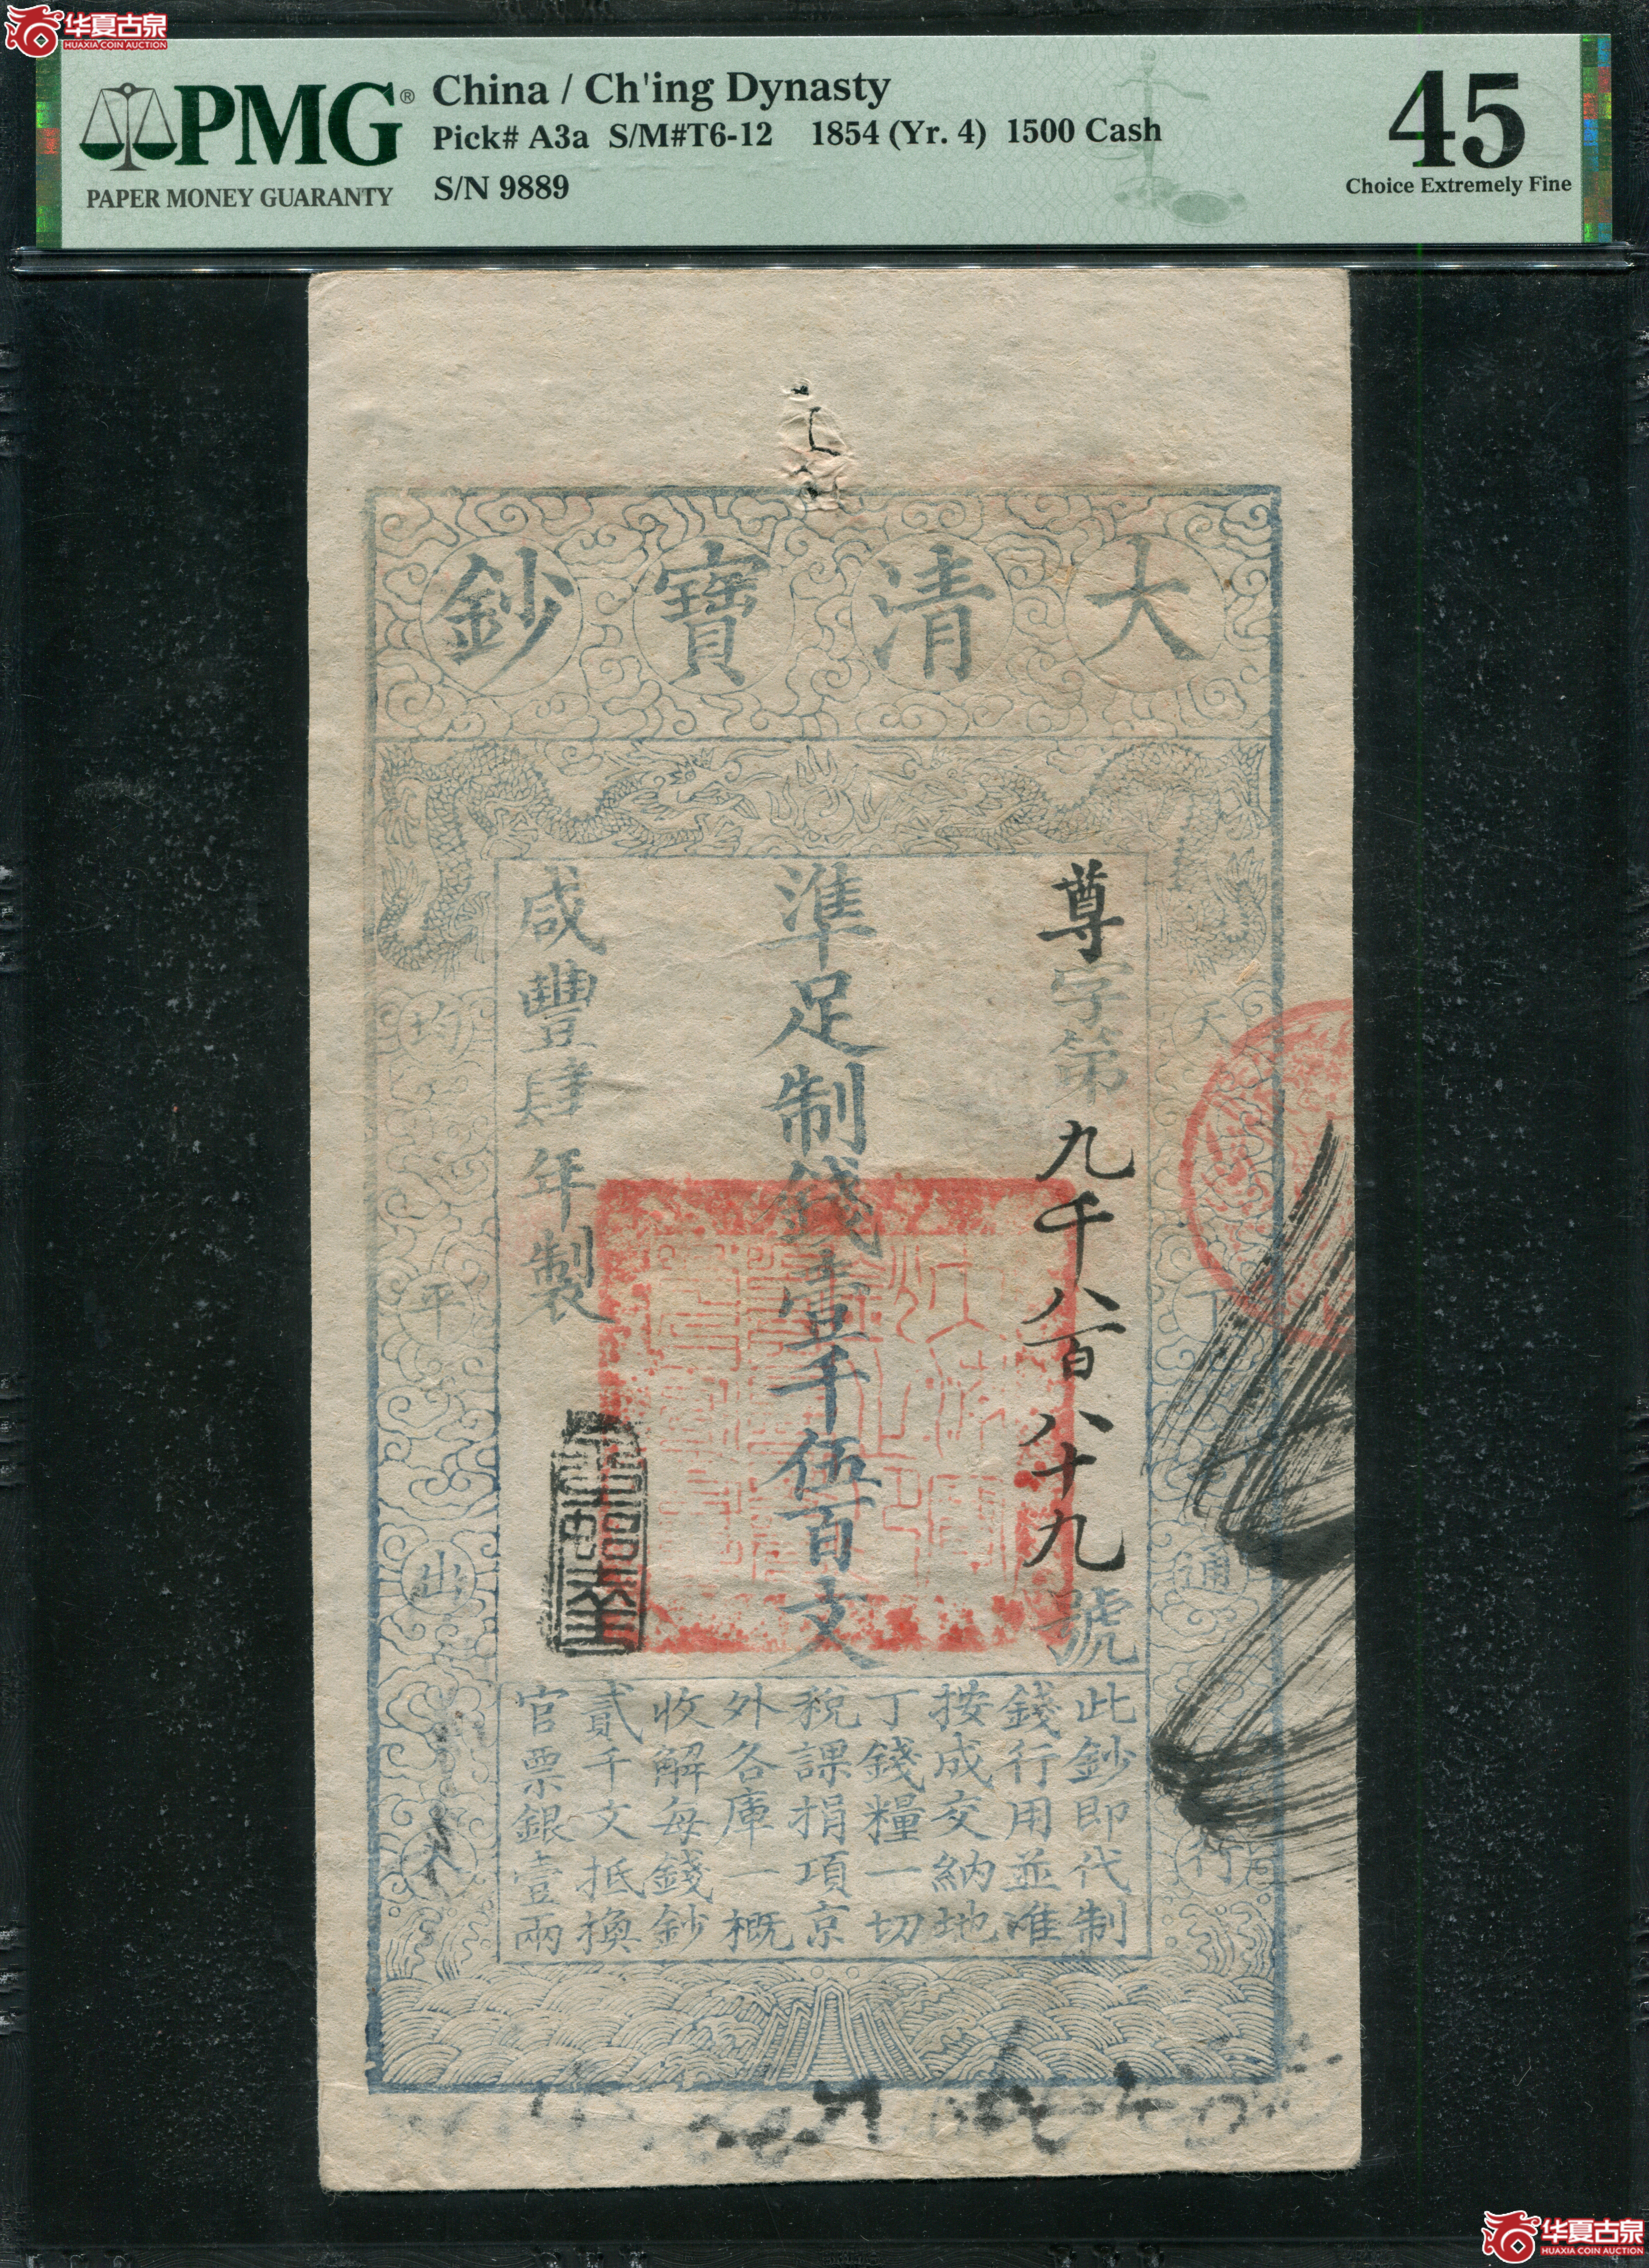 华夏古泉
HUAXIA COIN AUCTION
PMG®
PAPER MONEY GUARANTY
China / Ch'ing Dynasty
Pick# A3a S/M#T6-12 1854 (Yr. 4) 1500 Cash
S/N 9889
45
Choice Extremely Fine
大清寶鈔
天下通行
均平出入
尊字第九千八百八十九號
準足制錢壹千伍百文
咸豐肆年製
此鈔即代制
錢行用並准
按成交納地
丁錢糧一切
稅課捐項京
外各庫一概
收解每錢鈔
貳千文抵換
官票銀壹兩
华夏古泉
HUAXIA COIN AUCTION